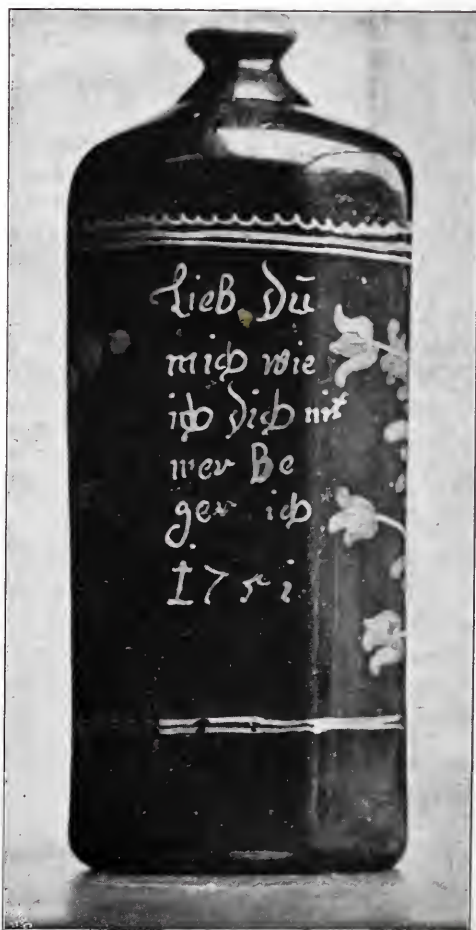 Lieb Dū
mich wie
ich Dich nit
mer Be
ger ich
1751